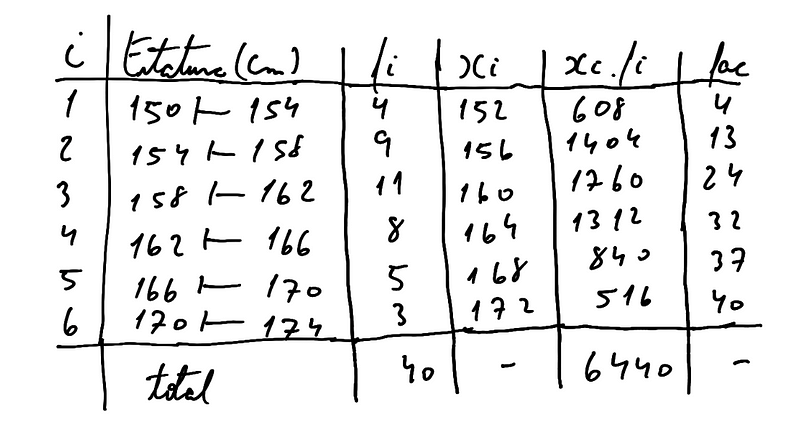 i Estatura (cm) fi xi xi.fi fac
1 150 ⊢ 154 4 152 608 4
2 154 ⊢ 158 9 156 1404 13
3 158 ⊢ 162 11 160 1760 24
4 162 ⊢ 166 8 164 1312 32
5 166 ⊢ 170 5 168 840 37
6 170 ⊢ 174 3 172 516 40
total 40 - 6440 -